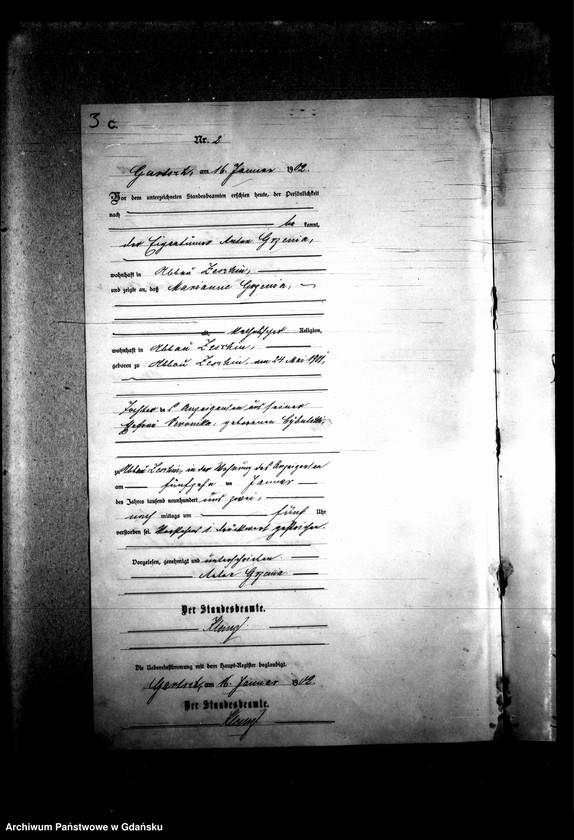 3 C.
Nr. 2
am 16. Januar 1902.
Vor dem unterzeichneten Standesbeamten erschien heute, der Persönlichkeit
nach
be kannt,
der Eigentümer Anton Grzenia,
wohnhaft in Abbau
und zeigte an, daß Marianne Grzenia,
alt, katholischer Religion,
wohnhaft in Abbau
geboren zu Abbau am 24 Mai 1901,
Tochter des Anzeigenden und seiner
Ehefrau Veronika, geborenen
zu Abbau in der Wohnung des Anzeigenden
am fünfzehn ten Januar
des Jahres tausend neunhundert und zwei,
nach mittags um fünf Uhr
verstorben sei. Druckwort gestrichen.
Vorgelesen, genehmigt und unterschrieben.
Anton Grzenia
Der Standesbeamte.
Die Uebereinstimmung mit dem Haupt-Register beglaubigt.
am 16. Januar 1902.
Der Standesbeamte.
Archiwum Państwowe w Gdańsku